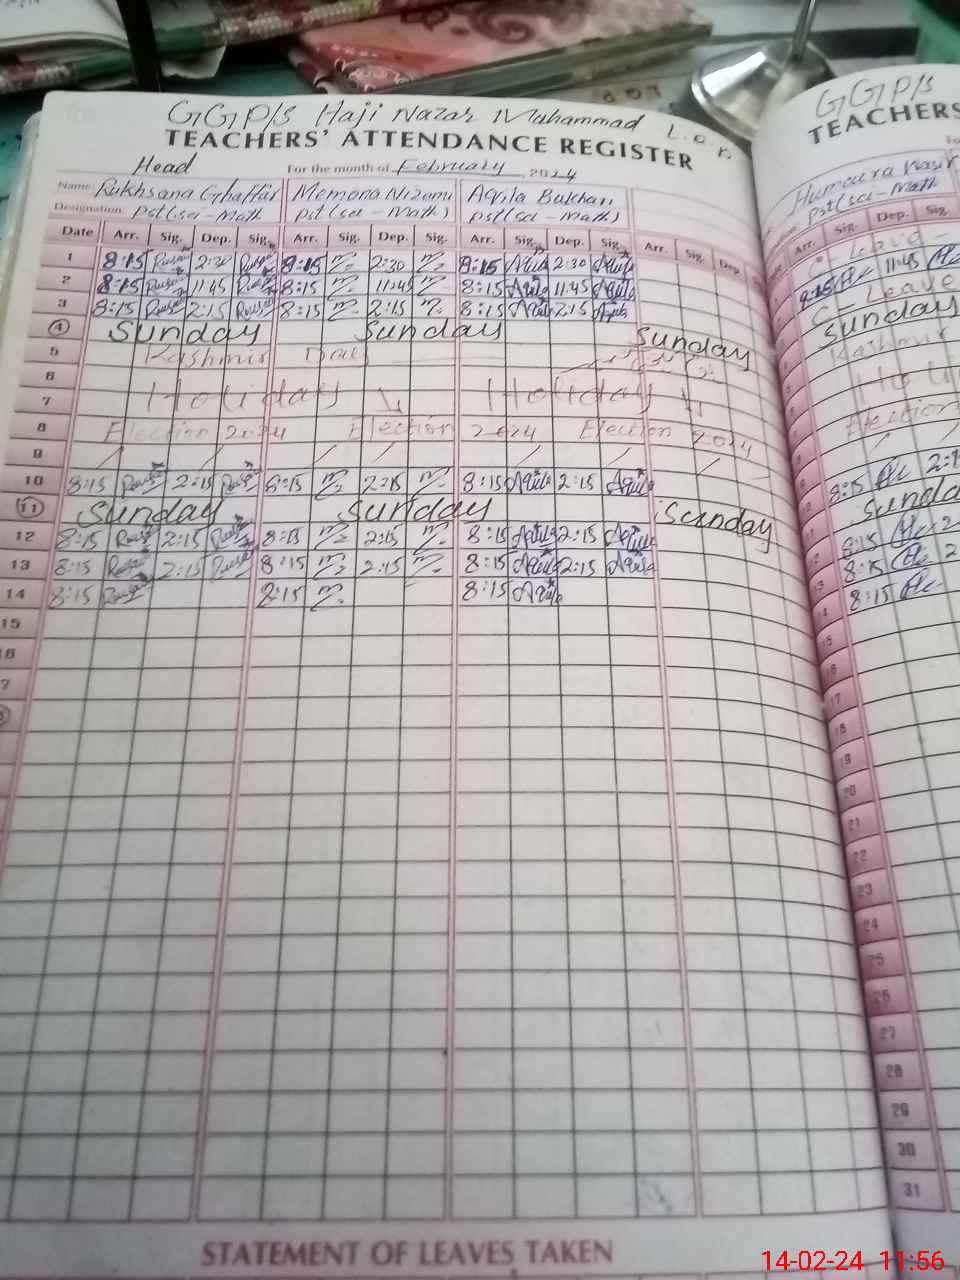 GGP/S Haji Nazar Muhammad L.o.r.
TEACHERS' ATTENDANCE REGISTER
Head For the month of February 2024
Name: Rukhsana Ghaffar Memona Nizami Aqila Bukhari
Designation: Pst (sci - Math) Pst (sci - Math) Pst (sci - Math)
Date Arr. Sig. Dep. Sig. Arr. Sig. Dep. Sig. Arr. Sig. Dep. Sig. Arr. Sig. Dep.
1 8:15 2:30 8:15 2:30 8:15 Aqila 2:30 Aqila
2 8:15 11:45 8:15 11:45 8:15 Aqila 11:45 Aqila
3 8:15 2:15 8:15 2:15 8:15 Aqila 2:15 Aqila
4 Sunday Sunday Sunday
5 Kashmir Day
6
7 Holiday Holiday
8 Election 2024 Election 2024 Election 2024
9
10 8:15 2:15 8:15 2:15 8:15 Aqila 2:15 Aqila
11 Sunday Sunday Sunday
12 8:15 2:15 8:15 2:15 8:15 Aqila 2:15 Aqila
13 8:15 2:15 8:15 2:15 8:15 Aqila 2:15 Aqila
14 8:15 8:15 8:15 Aqila
15
16
7
STATEMENT OF LEAVES TAKEN
GGP/S
TEACHERS
Humaira
Pst (sci - Math
Arr. Sig. Dep. Sig.
C Leave
8:15 11:45
C Leave
Sunday
Kashmir
Election
8:15 2:1
Sunda
12 8:15 2
8:15 2
13 8:15
14
15
16
17
18
19
20
21
22
23
24
25
26
27
28
29
30
31
14-02-24 11:56